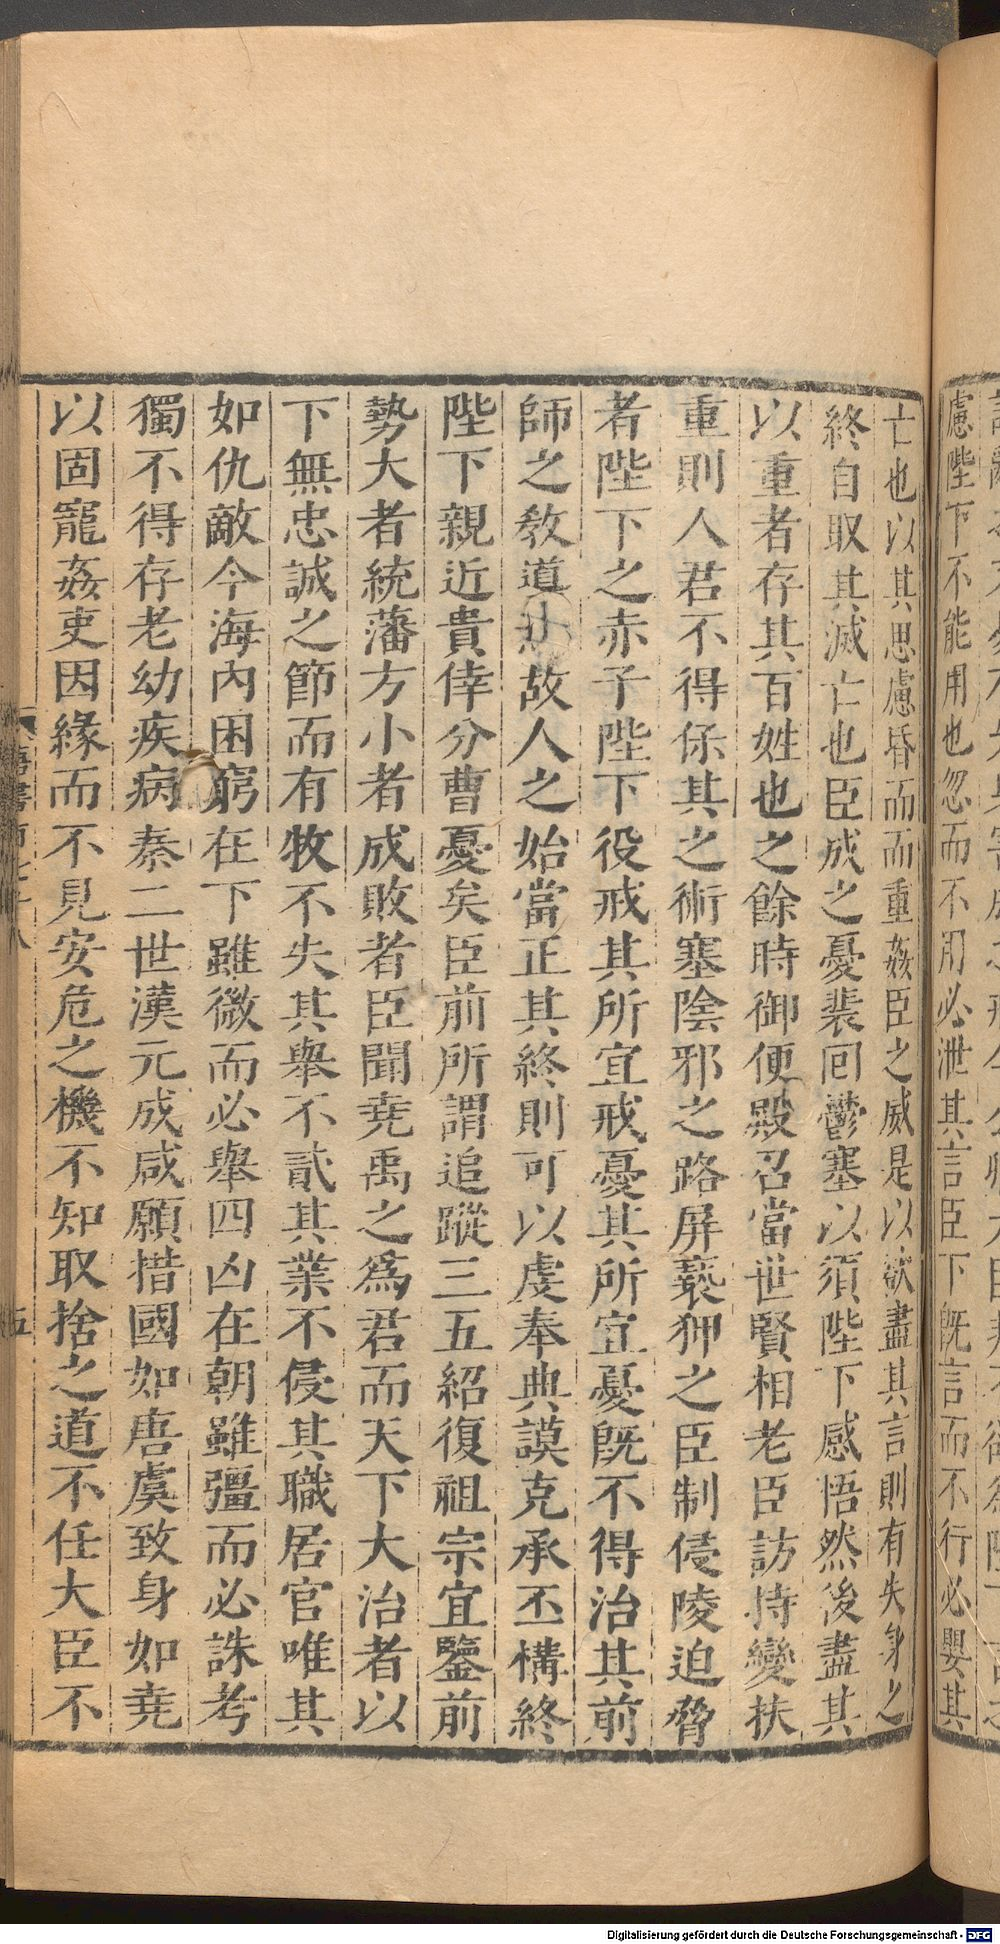 慮陛下不能用也忽而不用必泄其言臣下既言而不行必嬰其
亡也以其思慮昏而而重姦臣之威是以欲盡其言則有失身之
終自取其滅亡也臣成之憂裴回鬱塞以須陛下感悟然後盡其
以重者存其百姓也之餘時御便殿召當世賢相老臣訪持變扶
重則人君不得保其之術塞陰邪之路屏褻狎之臣制侵陵迫脅
者陛下之赤子陛下役戒其所宜戒憂其所宜憂既不得治其前
師之教道故人之始當正其終則可以虔奉典謨克承丕構終
陛下親近貴倖分曹憂矣臣前所謂追蹤三五紹復祖宗宜鑒前
勢大者統藩方小者成敗者臣聞堯禹之爲君而天下大治者以
下無忠誠之節而有牧不失其舉不貳其業不侵其職居官唯其
如仇敵今海內困窮在下雖微而必舉四凶在朝雖彊而必誅考
獨不得存老幼疾病秦二世漢元成咸願措國如唐虞致身如堯
以固寵姦吏因緣而不見安危之機不知取捨之道不任大臣不
五
Digitalisierung gefördert durch die Deutsche Forschungsgemeinschaft - DFG